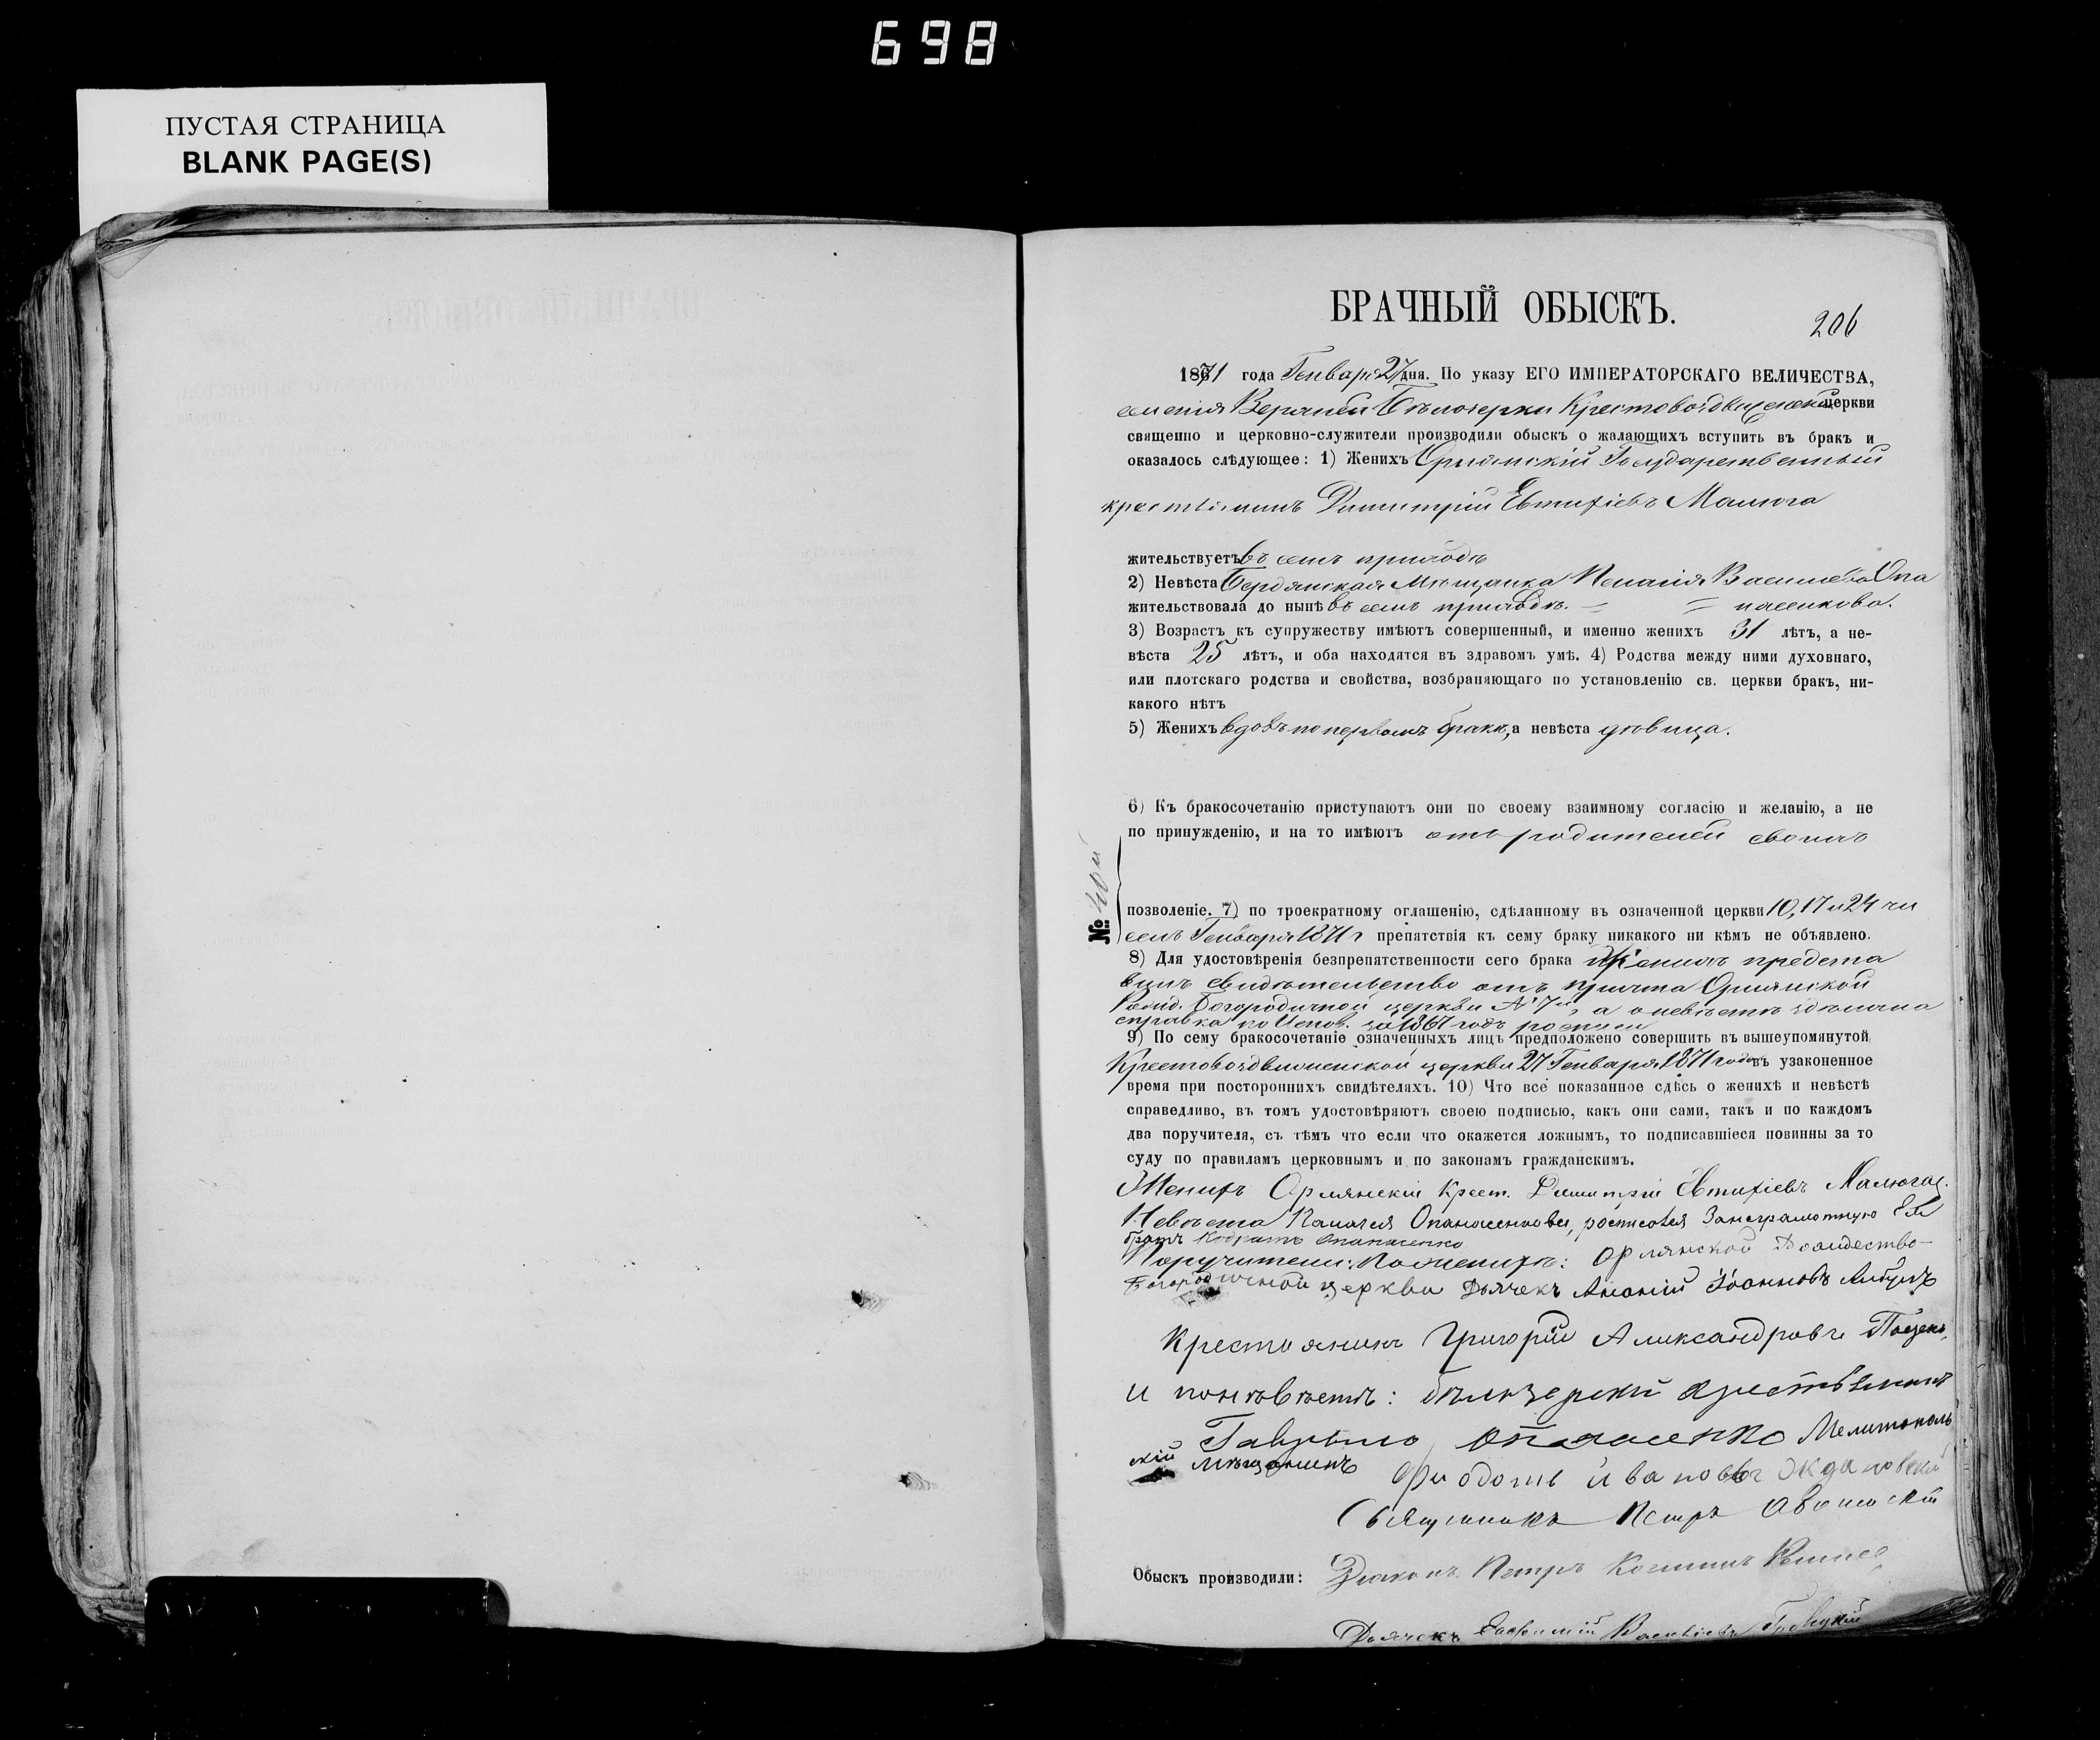 698
ПУСТАЯ СТРАНИЦА
BLANK PAGE(S)
БРАЧНЫЙ ОБЫСКЪ.
206
1871 года Генваря 27 дня. По указу ЕГО ИМПЕРАТОРСКАГО ВЕЛИЧЕСТВА,
селенія Верхней Бѣлозерки Крестовоздвиженской церкви
священно и церковно-служители производили обыскъ о жалающихъ вступить въ бракъ и
оказалось слѣдующее: 1) Женихъ Орлянскій Государственный
крестьянинъ Димитрій Евтихіевъ Малюга
жительствуетъ въ семъ приходѣ
2) Невѣста Бердянская Мѣщанка Пелагія Васильева Опа
жительствовала до нынѣ въ семъ приходѣ. = насенкова.
3) Возрастъ къ супружеству имѣютъ совершенный, и именно женихъ 31 лѣтъ, а не-
вѣста 25 лѣтъ, и оба находятся въ здравомъ умѣ. 4) Родства между ними духовнаго,
или плотскаго родства и свойства, возбраняющаго по установленію св. церкви бракъ, ни-
какого нѣтъ
5) Женихъ вдовъ по первомъ бракѣ, а невѣста дѣвица.
6) Къ бракосочетанію приступаютъ они по своему взаимному согласію и желанію, а не
по принужденію, и на то имѣютъ отъ родителей своихъ
№
позволеніе. 7) по троекратному оглашенію, сдѣланному въ означенной церкви 10, 17 и 24 чи
селъ Генваря 1871 г препятствія къ сему браку никакого ни кѣмъ не объявлено.
8) Для удостовѣренія безпрепятственности сего брака Женихъ предста
вилъ свидѣтельство отъ причта Орлянской
Рожд. Богородичной церкви № 7й, а о невѣстѣ сдѣлана
справка по Испов. за 1867 годъ росписи
9) По сему бракосочетаніе означенныхъ лицъ предположено совершить въ вышеупомянутой
Крестовоздвиженской церкви 27 Генваря 1871 года въ узаконенное
время при постороннихъ свидѣтеляхъ. 10) Что все показанное сдѣсь о женихѣ и невѣстѣ
справедливо, въ томъ удостовѣряютъ своею подписью, какъ они сами, такъ и по каждомъ
два поручителя, съ тѣмъ что если что окажется ложнымъ, то подписавшіеся повинны за то
суду по правиламъ церковнымъ и по законамъ гражданскимъ.
Женихъ Орлянскій Крест. Димитрій Евтихіевъ Малюга.
Невѣста Пелагея Опанасенкова, росписовся за неграмотную Ея
братъ Кодратъ Опанасенко
Поручители: По женихѣ: Орлянской Рождество-
Богородичной церкви Дьячекъ Ананій Іоанновъ
Крестьянинъ Григорій Александровъ
и по невѣстѣ: бѣлозерскій крестьянинъ
Гаврыло Опанасенко Мелитополь
скій мѣщанинъ Федотъ Ивановъ
Священникъ Петръ
Обыскъ производили: Діаконъ Петръ Косминъ
Дьячекъ Василіевъ